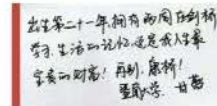 出生第二十一年,拥有两周在剑桥
学习、生活的记忆,这是我人生最
宝贵的财富!再别,康桥!
甘